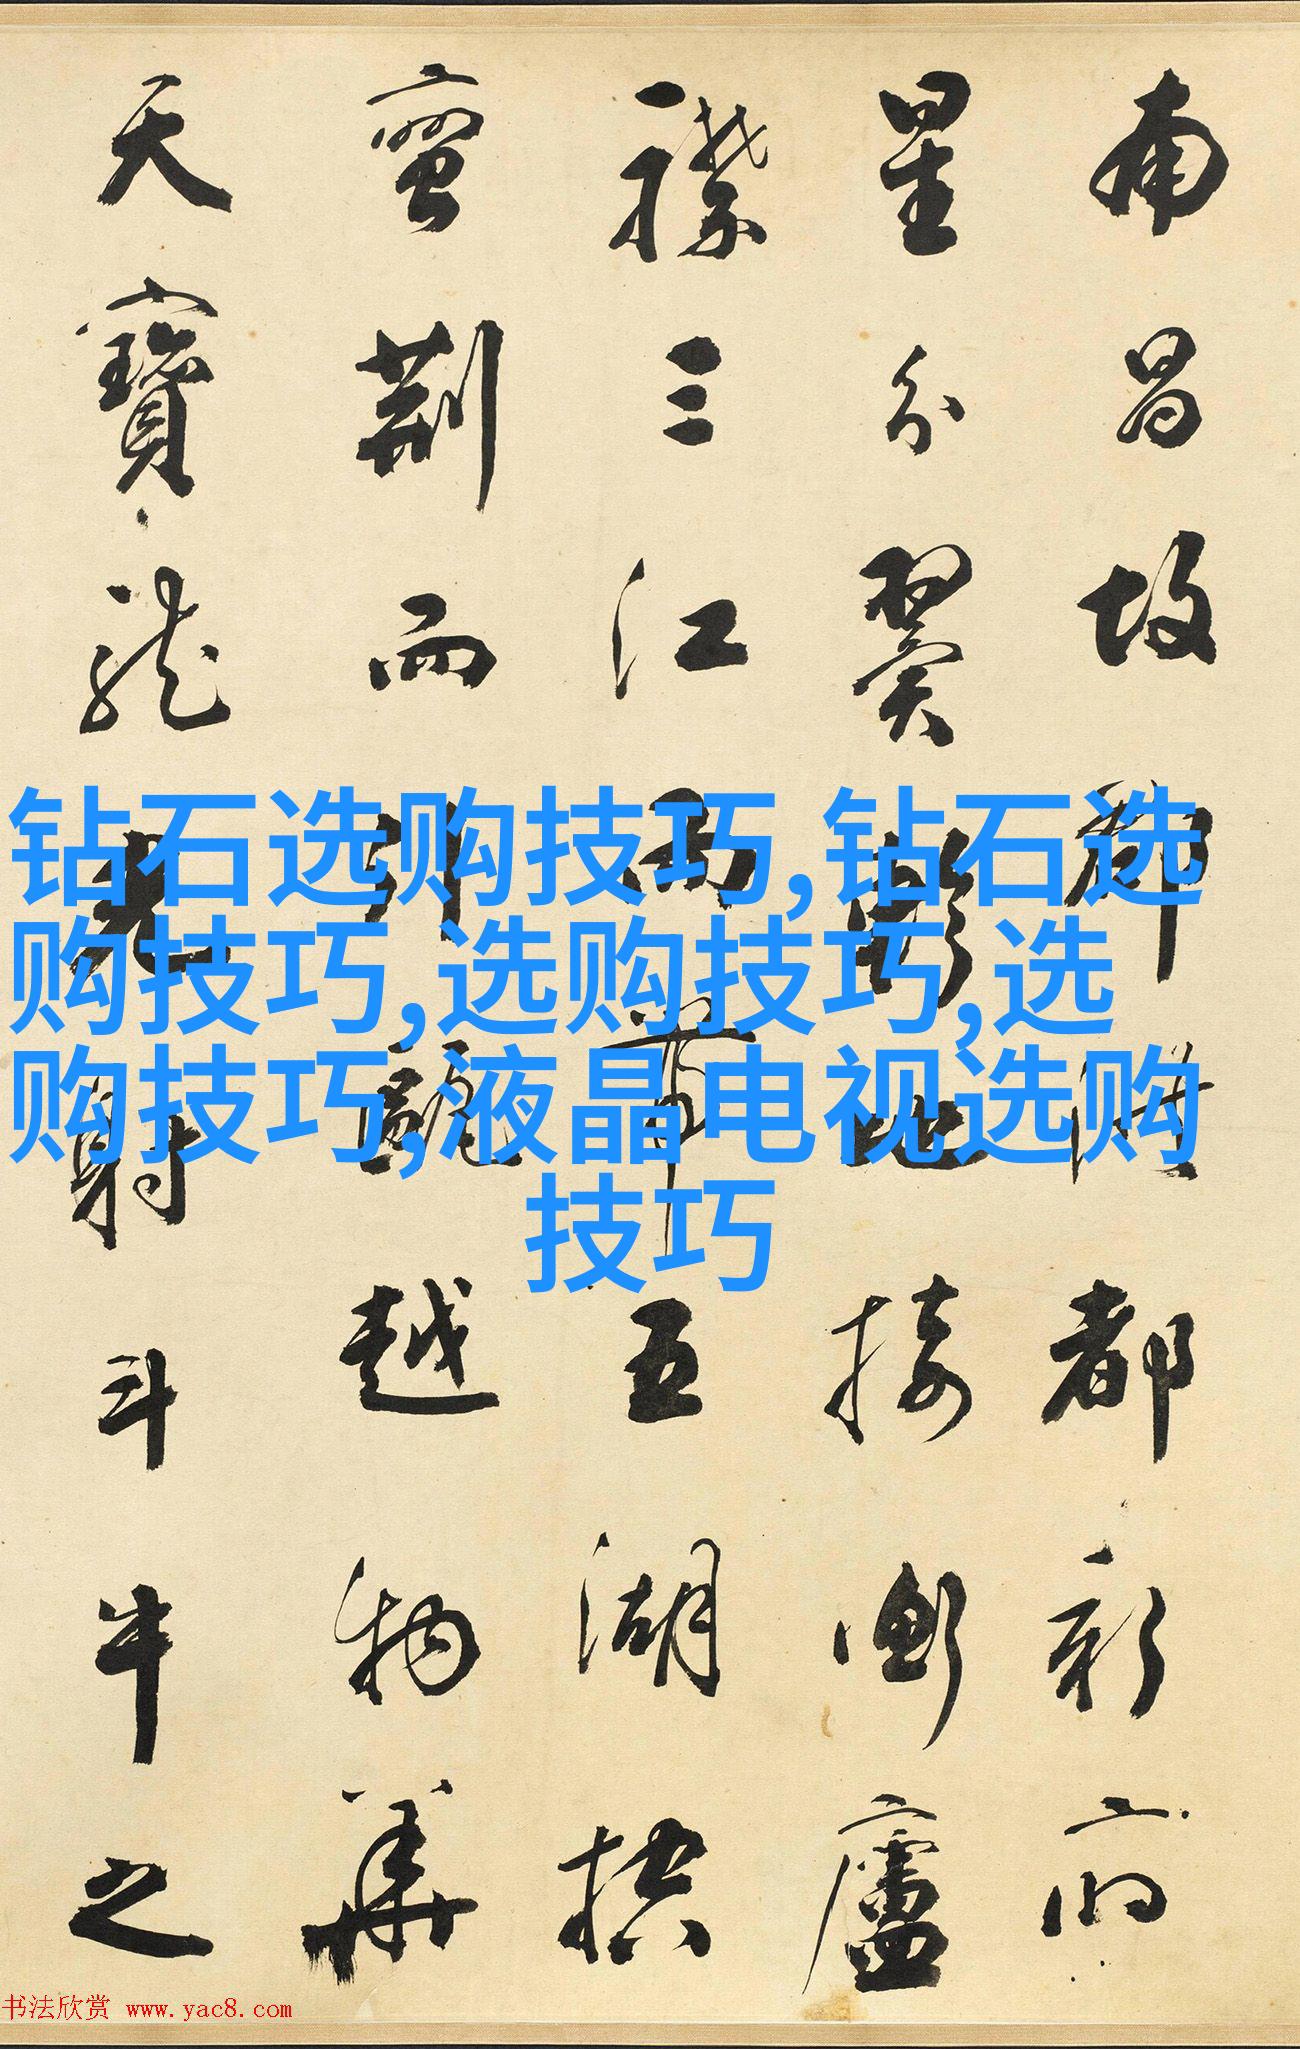 南昌故郡洪都新府
星分翼軫地接衡廬
襟三江而帶五湖控
蠻荆而引甌越物華
天寶龍光射斗牛之
钻石选购技巧,钻石选
购技巧,选购技巧,选
购技巧,液晶电视选购
技巧
书法欣赏 www.yac8.com